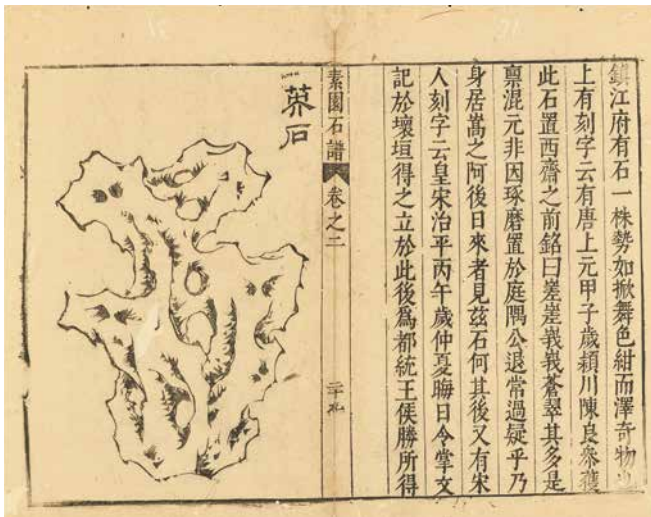 鎮江府有石一株勢如掀舞色紺而澤奇物也
上有刻字云有唐上元甲子歲潁川陳良叅獲
此石置西齋之前銘曰嵳嵳峩峩蒼翠其多是
禀混元非因琢磨置於庭隅公退常過疑乎乃
身居嵩之阿後日來者見茲石何其後又有宋
人刻字云皇宋治平丙午歲仲夏晦日令掌文
記於壞垣得之立於此後爲都統王侯勝所得
素園石譜
卷之二
二十九
莽石